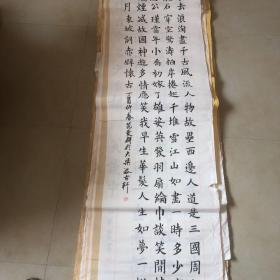 去浪淘盡千古風流人物故壘西邊人道是三國周
石穿空驚濤拍岸捲起千堆雪江山如畫一時多少
公瑾當年小喬初嫁了雄姿英發羽扇綸巾談笑間
煙滅故國神遊多情應笑我早生華髮人生如夢一
月東坡詞赤壁懷古丁酉仲春